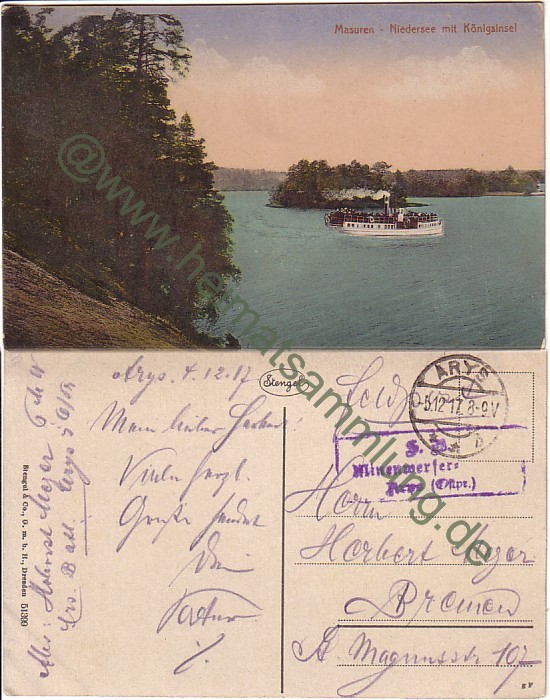 Masuren - Niedersee mit Königsinsel
@www.heimatsammlung.de
Arys. 4.12.17
Mein lieber Herbert!
Viele herzl.
Grüße sendet
Dein
Vater
Stengel
ARYS
-5.12.17. 8-9V
S. B.
Minenwerfer-
Arys (Ostpr.)
Herrn
Herbert Meyer
Bremen
St. Magnusstr 107
Stengel & Co., G. m. b. H., Dresden 51399
Abs: Meyer
Ers Batl. Arys